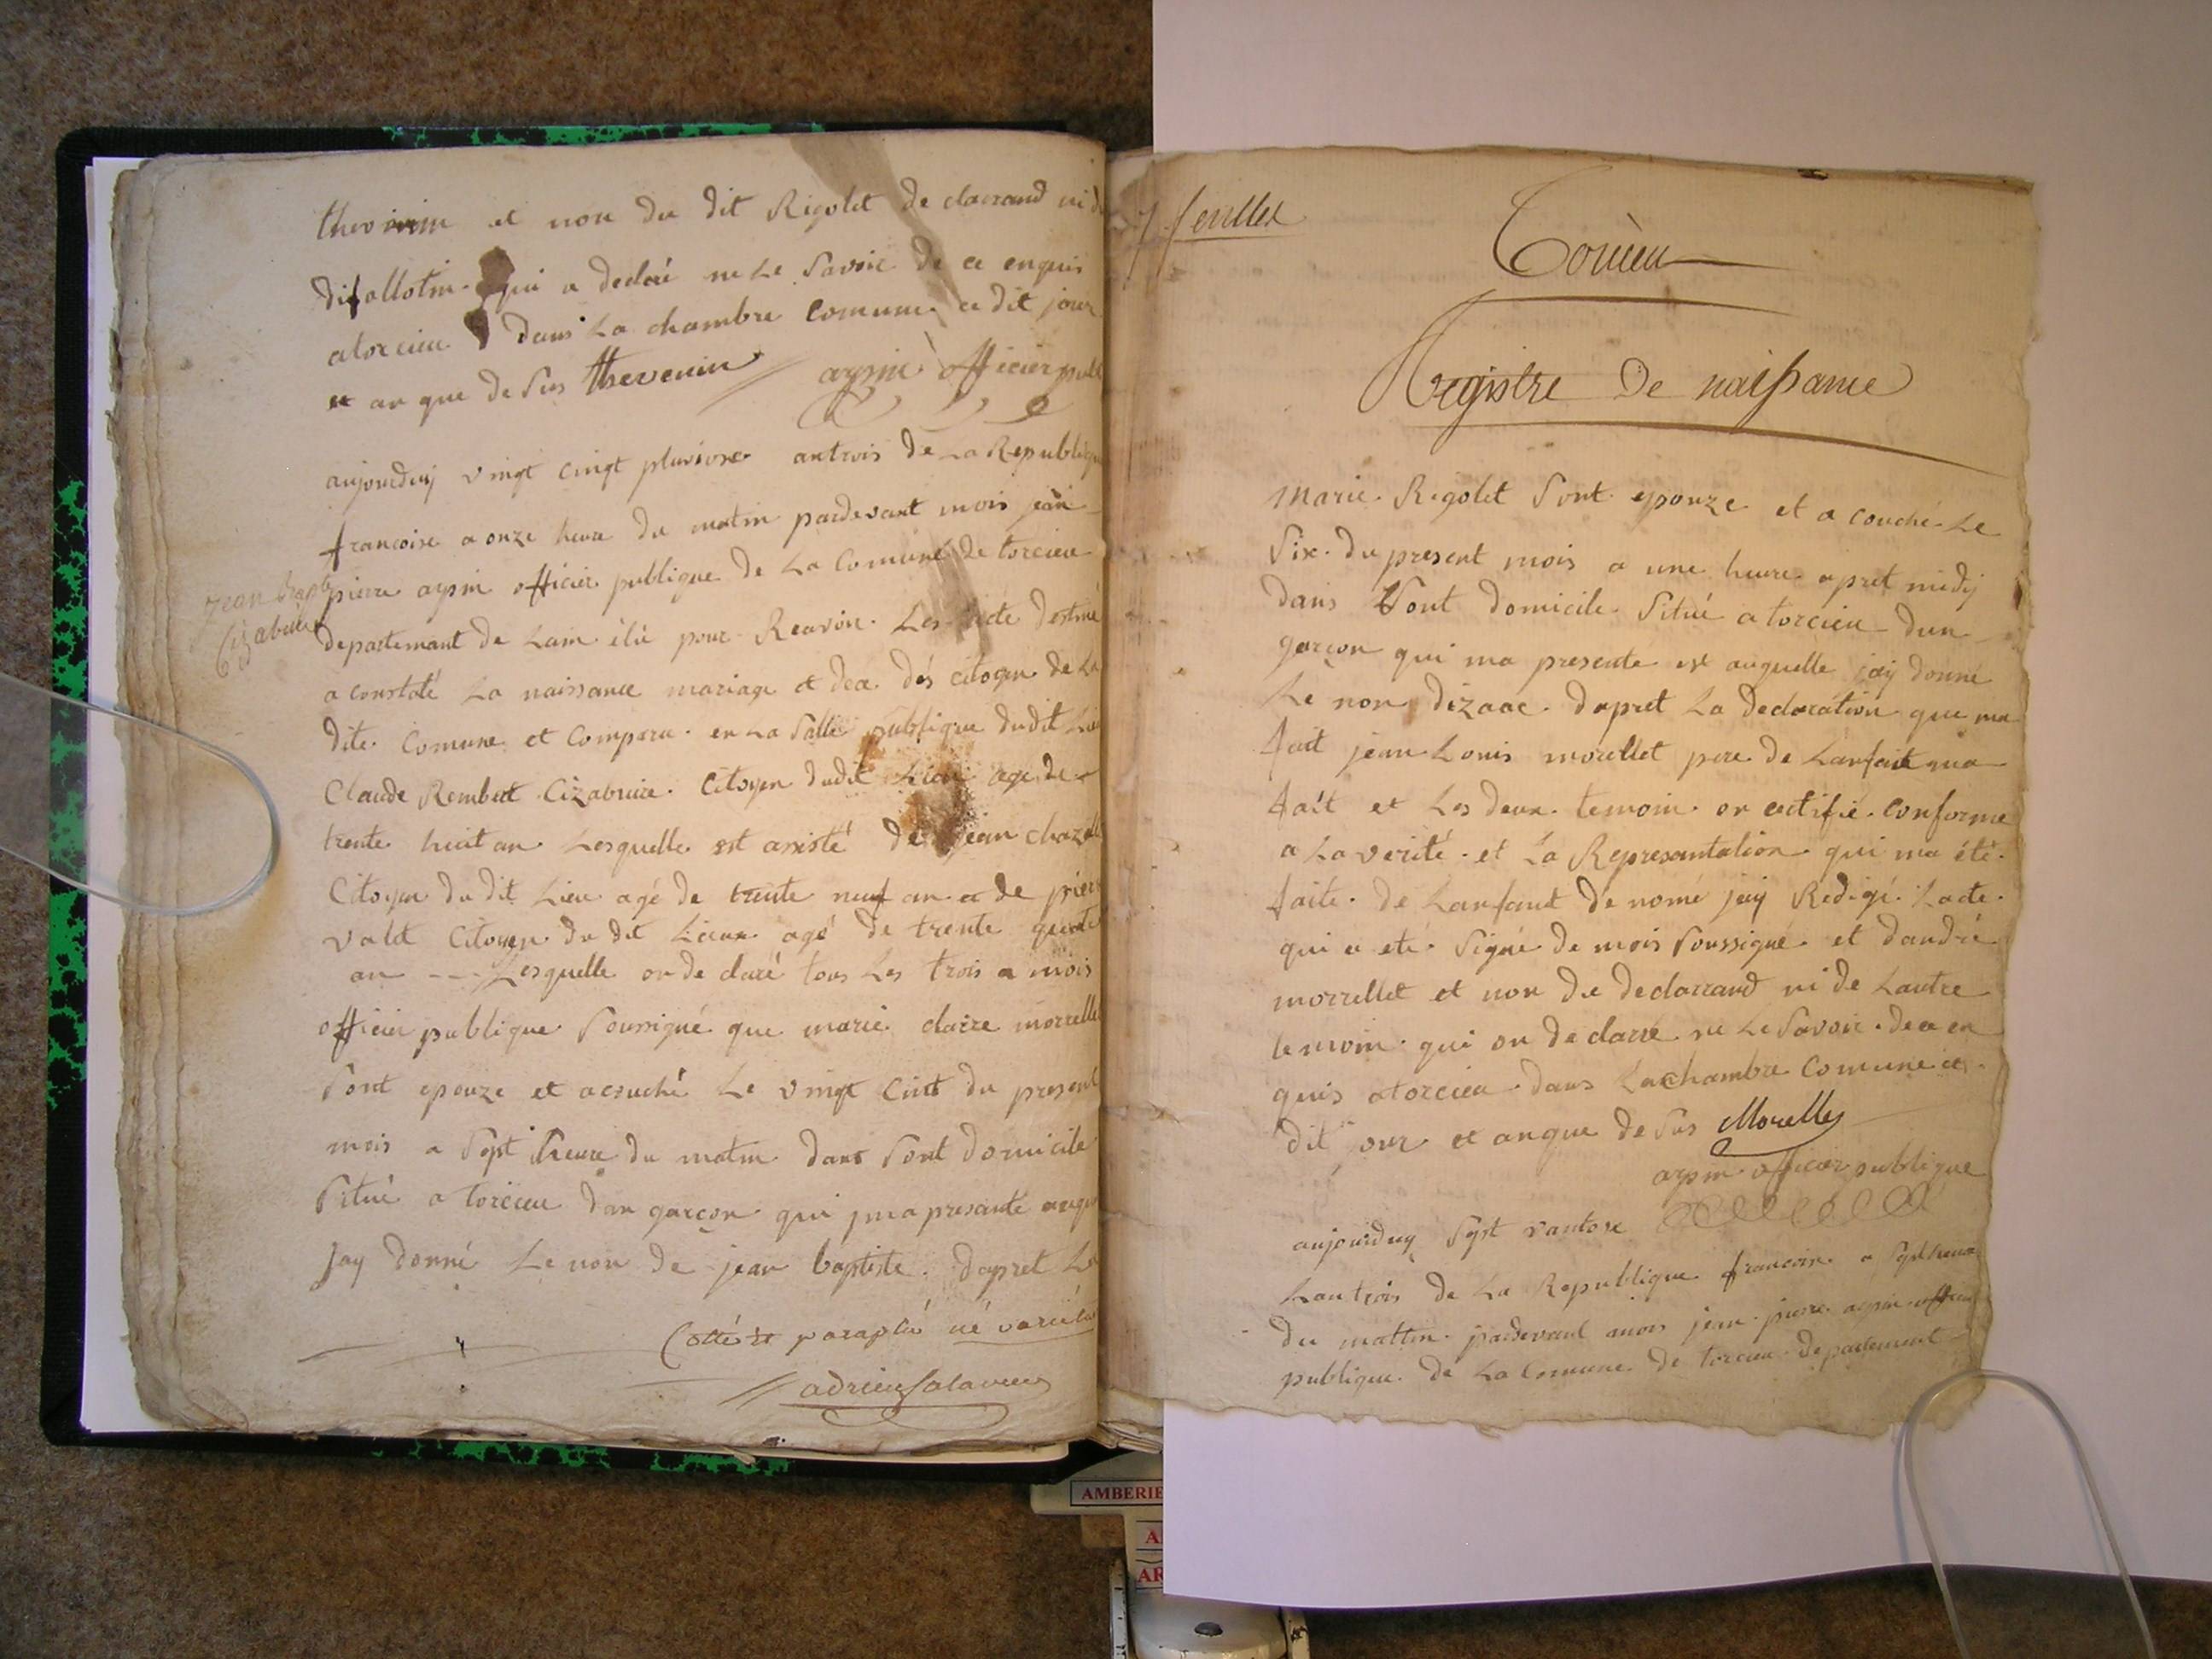 thevenin et non du dit Rigolet de clarrand ni d
difallotin qui a declaré ne Le Savoir de ce enquis
atorcieu dans La chambre Comune ce dit jour
et an que de Sus thevenin arpin officier publ
aujourduij vingt cinqt pluviose antrois de La Republiqu
francoise a onze heure du matin pardevant mois jean
pierre arpin officier publique de La Comune de torcieu
jean Bapte
Cizabuire
departemant de Lain élû pour Reavoir Les acte destiné
a constaté La naissance mariage et dece dés citoyen de La
dite Comune et Comparu en La Salle publique dudit Lie
Claude Rembert Cizabuire Citoyen dudit Lieu age de
trente huit an Lesquelle est assisté de jean chazell
Citoyen du dit Lieu agé de trente neuf an et de pier
valet Citoyen du dit Lieux agé de trente quatre
an --- Lesquelle on de claré tous Les trois a mois
officier publique Soussigné que marie claire morrelle
Sont epouze et acouché Le vingt Cint du present
mois a Sept heure du matin dans Sont Domicile
Situé a torcieu dun garcon qui ma presanté auque
Jay donné Le non de jean baptiste dapret La
Cotté et paraphé né varietur
adrien Salavuard
7 feuillet
Torcieu
Registre De naissance
Marie Rigolet Sont epouze et a couché Le
Six du present mois a une heure apret midij
dans Sont domicile Situé a torcieu dun
garcon qui ma presenté et auquelle jaij donné
Le non dizaac dapret La declaration que ma
fait jean Louis morellet pere de Lanfait ma
fait et Les deux temoin on certifié conforme
a La verité et La Represantation qui ma été
faite de Lanfant de nomé jaij Redigé Lacte
qui a eté Signé de mois Soussigné et dandré
morrellet et non du declarrand ni de Lautre
temoin qui on de claré ne Le Savoir de ce en
quis atorcieu dans La chambre Comune ce
dit jour et anque de Sus Morellet
arpin officier publique
aujourduij Sept vantose
Lantrois de La Republique francoise a Sept heure
du mattin pardevant mois jean piere arpin officier
publique de La Comune de torcieu departement
AMBERIE
A
AR